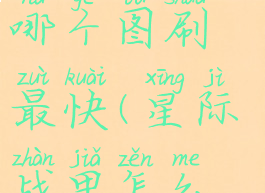 哪个图刷
zuì kuài xīng jì
最快(星际
zhàn jiǎ zěn me
战甲怎么